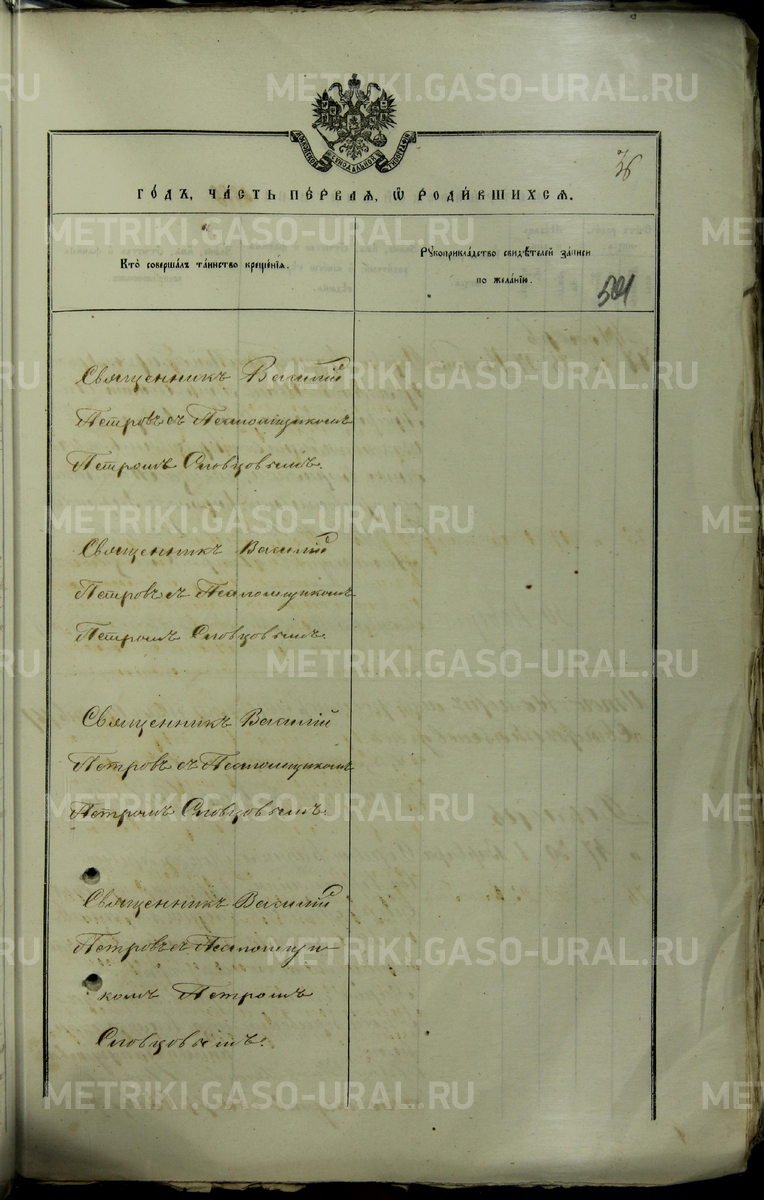 METRIKI.GASO-URAL.RU
36
ГО́ДЪ, ЧА́СТЬ ПЕ́РВАЯ, Ѡ РОДИ́ВШИХСЯ.
Кто̀ совершалъ та́инство креще́нія.
Рꙋкоприкла́дство свидѣ́телей за́писи
по жела́нію.
501
Священникъ Василій
Петровъ съ Псаломщикомъ
Петромъ Словцовымъ.
Священникъ Василій
Петровъ съ Псаломщикомъ
Петромъ Словцовымъ.
Священникъ Василій
Петровъ съ Псаломщикомъ
Петромъ Словцовымъ.
Священникъ Василій
Петровъ съ Псаломщи-
комъ Петромъ
Словцовымъ.